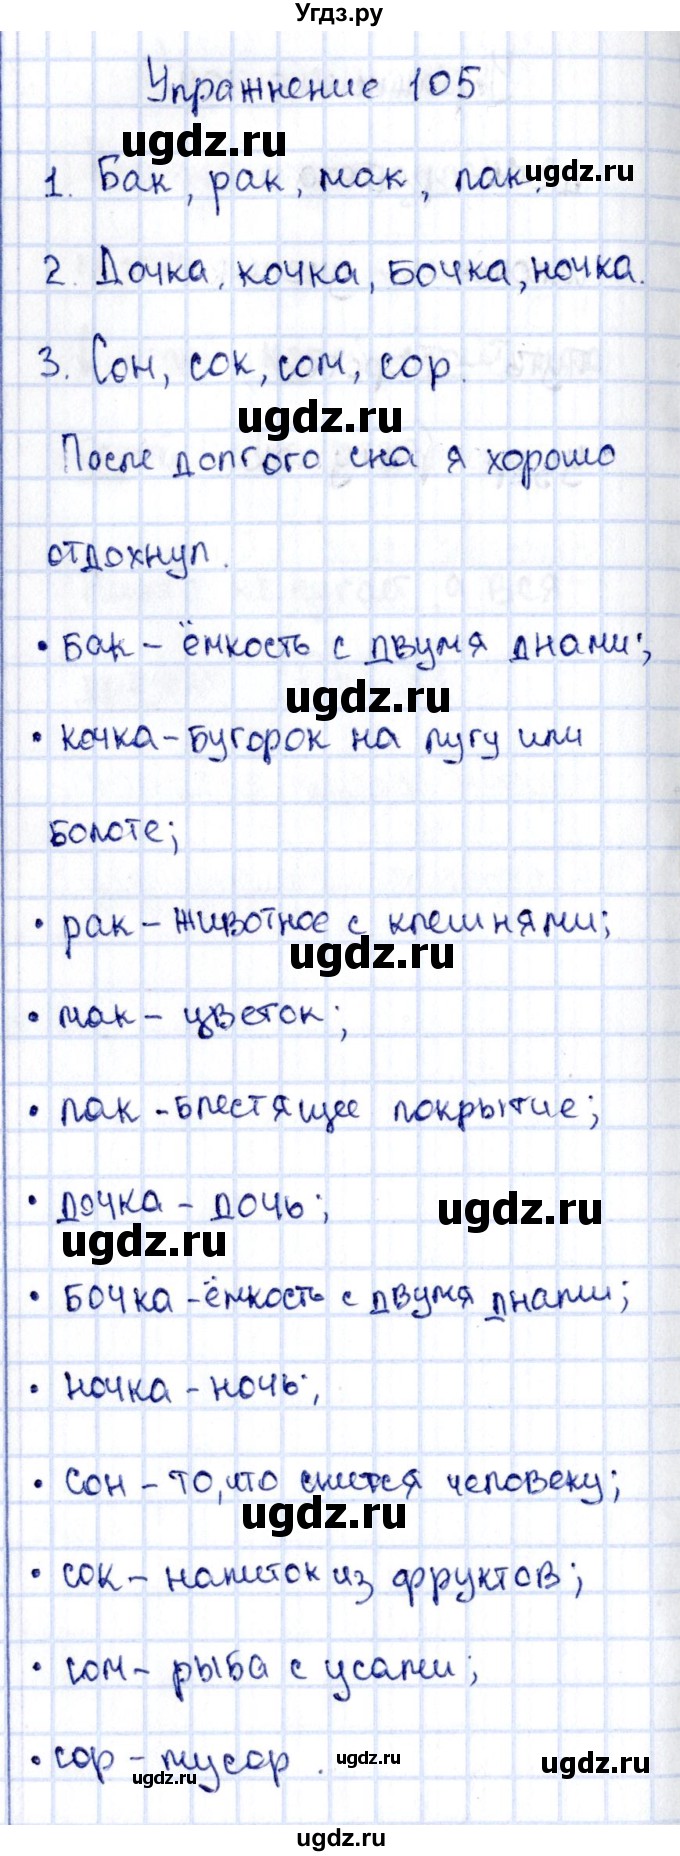 Угдз.ру
Упражнение 105
ugdz.ru
1. Бак, рак, мак, лак.
ugdz.ru
2. Дочка, кочка, бочка, ночка.
3. Сон, сок, сом, сор.
ugdz.ru
После долгого сна я хорошо
отдохнул.
• бак – ёмкость с двумя днами;
ugdz.ru
• кочка – бугорок на лугу или
болоте;
• рак – животное с клешнями;
ugdz.ru
• мак – цветок;
• лак – блестящее покрытие;
• дочка – дочь;
ugdz.ru
ugdz.ru
• бочка – ёмкость с двумя днами;
• ночка – ночь;
• сон – то, что снится человеку;
ugdz.ru
• сок – напиток из фруктов;
• сом – рыба с усами;
• сор – мусор.
ugdz.ru
ugdz.ru
ugdz.ru
ugdz.ru